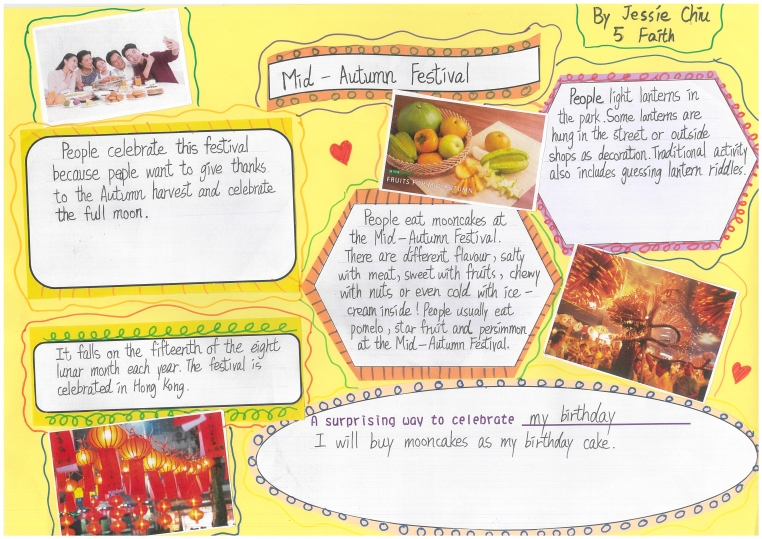 By Jessie Chiu
5 Faith
Mid - Autumn Festival
People celebrate this festival
because people want to give thanks
to the Autumn harvest and celebrate
the full moon.
It falls on the fifteenth of the eight
lunar month each year. The festival is
celebrated in Hong Kong.
People eat mooncakes at
the Mid - Autumn Festival.
There are different flavour, salty
with meat, sweet with fruits, chewy
with nuts or even cold with ice -
cream inside! People usually eat
pomelo, star fruit and persimmon
at the Mid - Autumn Festival.
People light lanterns in
the park. Some lanterns are
hung in the street or outside
shops as decoration. Traditional activity
also includes guessing lantern riddles.
A surprising way to celebrate my birthday
I will buy mooncakes as my birthday cake.